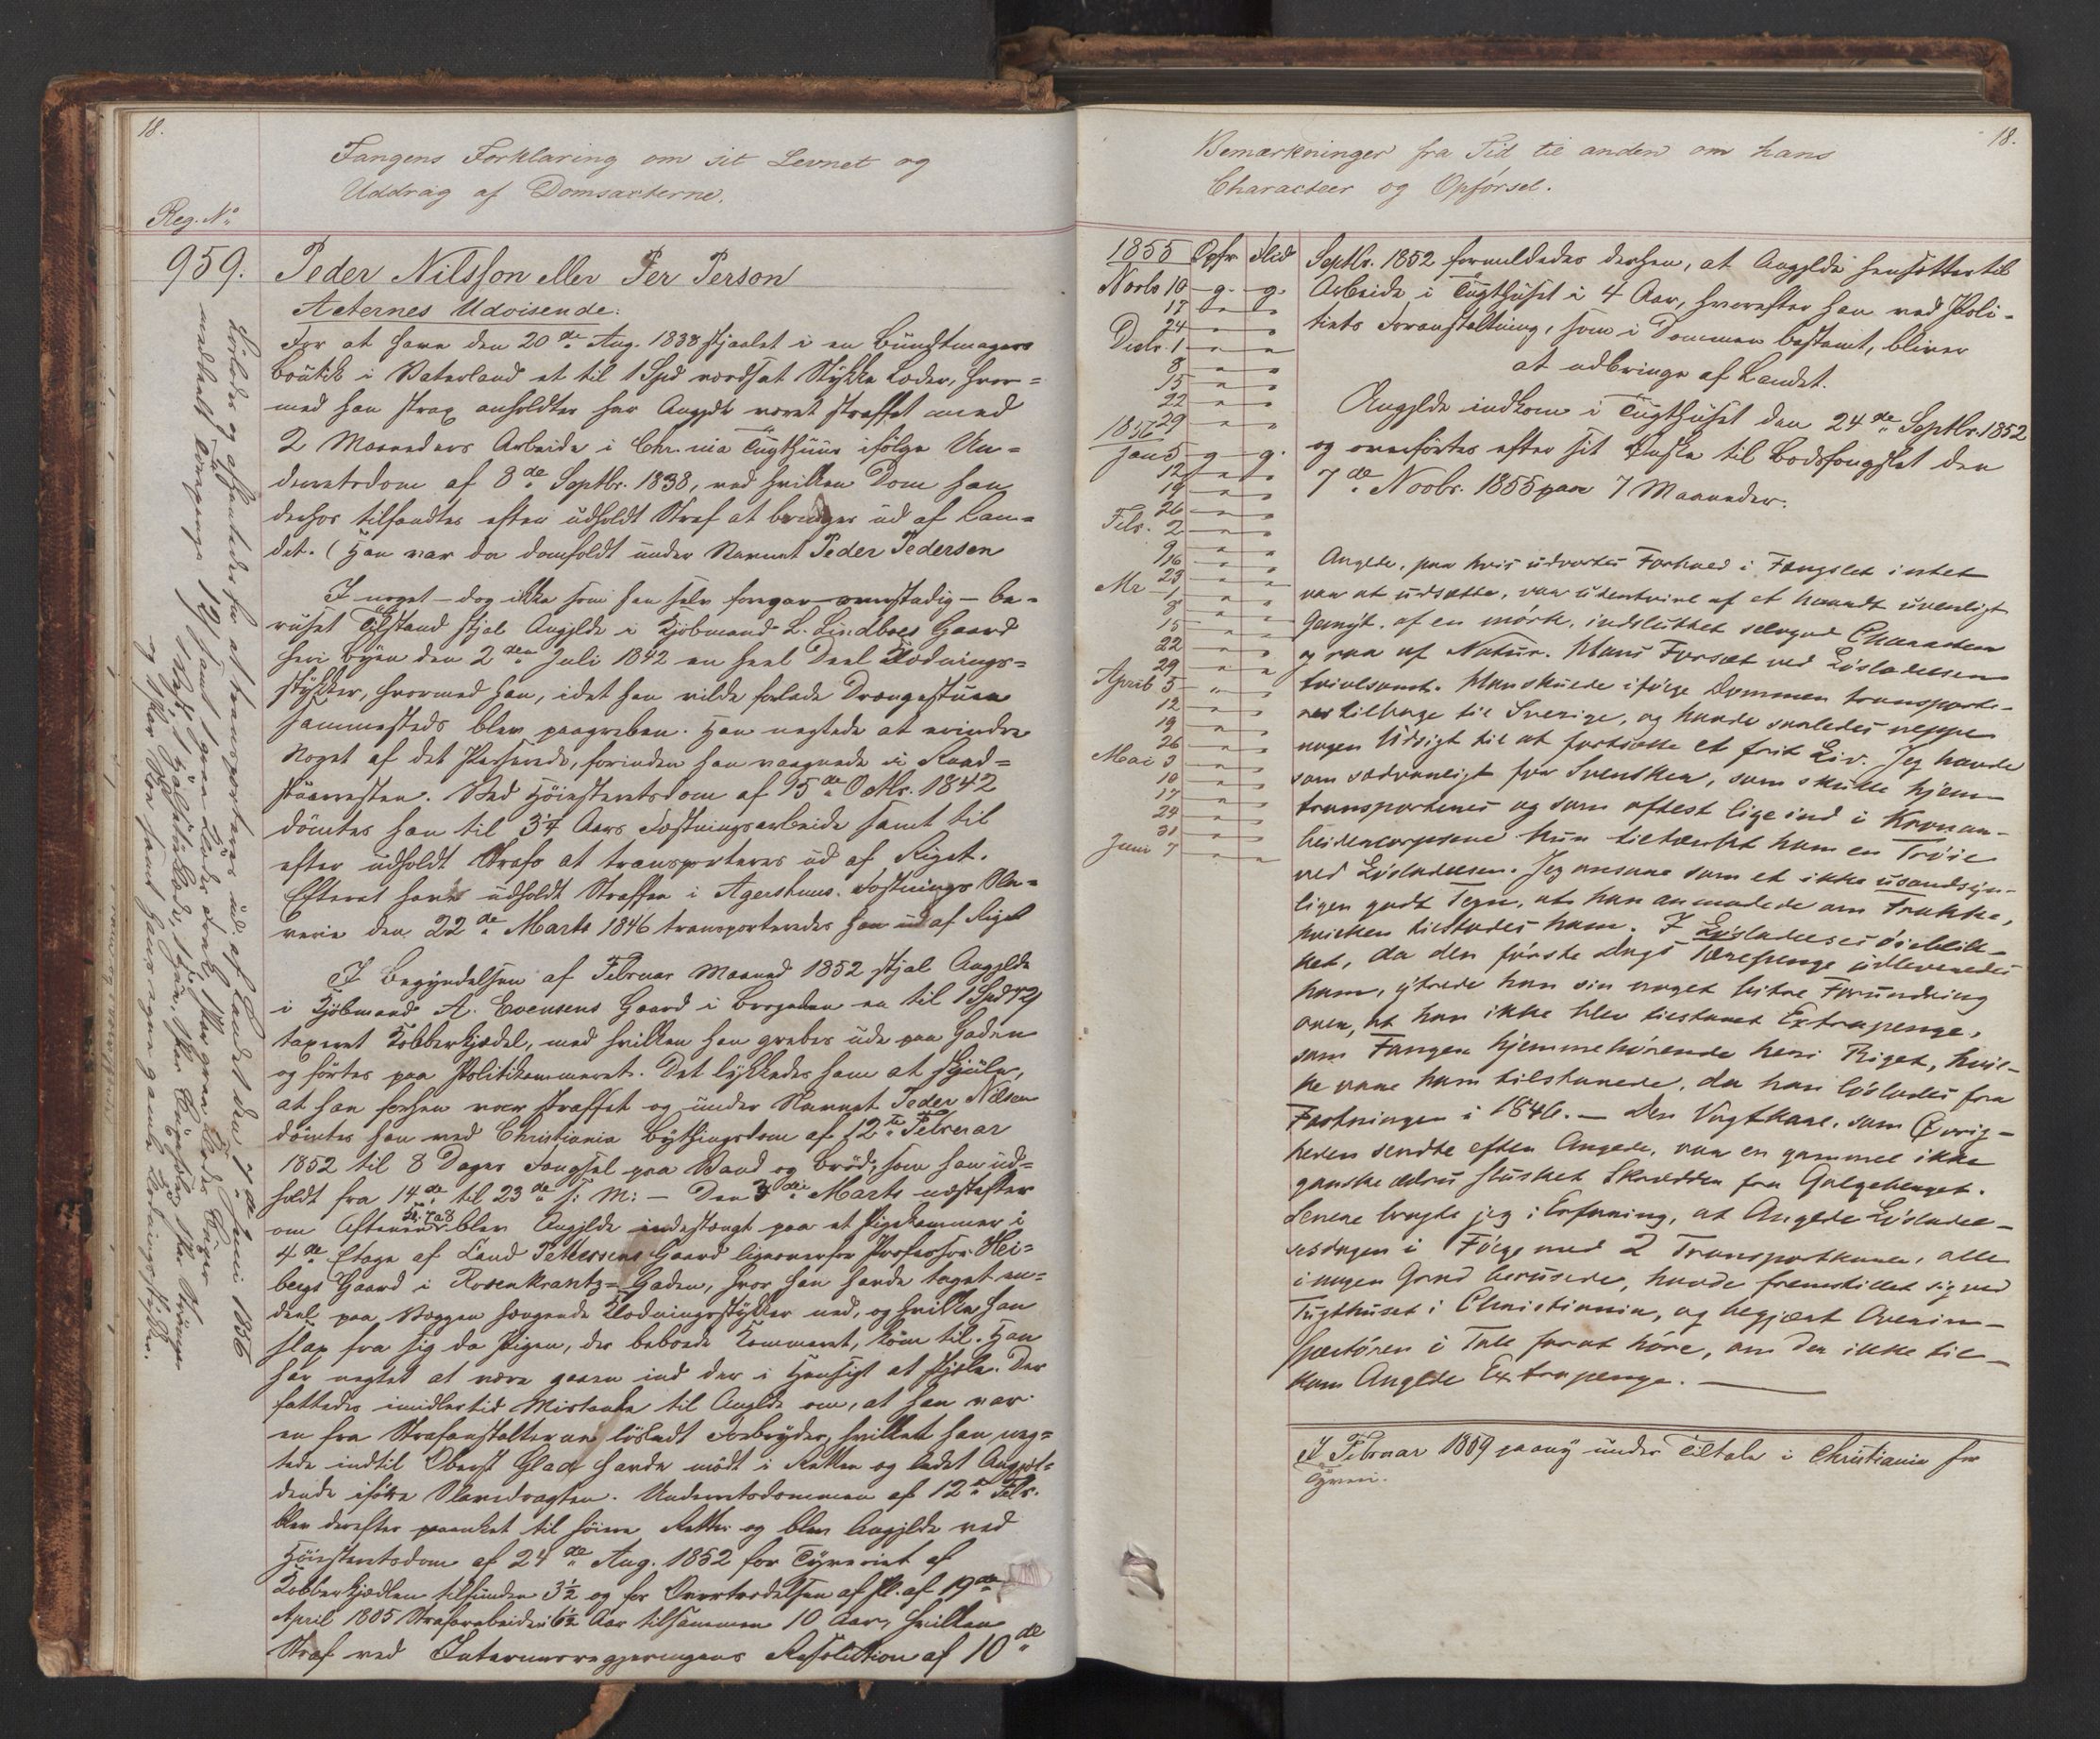 18.
Fangens Forklaring om sit Levnet og
Uddrag af Domsacterne.
Reg. No
959. Peder Nilsson eller Per Person
Acternes Udvisende:
For at have den 20de Aug. 1838 stjaalet i en Bundtmagers
Boutik i Vaterland et til 1 Spd værdsat Stykke Læder, hvor=
med han strax anholdtes har Angjældt været straffet med
2 Maaneders Arbeide i Chr.nia Tugthuus ifølge Un=
derretsdom af 8de Septbr. 1838, ved hvilken Dom han
derhos tilfandtes efter udholdt Straf at bringes ud af Lan=
det. (Han var da domfældt under Navnet Peder Pedersen
I noget – dog ikke som han selv foregav overstadig – be=
ruset Tilstand stjal Angjældte i Kjøbmand L. Lindboes Gaard
her i Byen den 2den Juli 1842 en heel Deel Klædnings=
stykker, hvormed han, idet han vilde forlade Drengestuen
sammesteds blev paagreben. Han negtede at erindre
Noget af det Passerede, forinden han vaagnede i Raad=
stuarresten. Ved Høiesteretsdom af 15de Octbr. 1842
dømtes han til 3¼ Aars Fæstningsarbeide samt til
efter udholdt Straf at transporteres ud af Riget.
Efterat have udholdt Straffen i Agershuus Fæstnings Sla=
verie den 22de Marts 1846 transporteredes han ud af Riget
I Begyndelsen af Februar Maaned 1852 stjal Angjældte
i Kjøbmand A. Evensens Gaard i Brogaden en til 1 Spd 72 ß
taxeret Kobberkjedel, med hvilken han grebes ude paa Gaden
og førtes paa Politikammeret. Det lykkedes ham at skjule,
at han forhen var straffet og under Navnet Peder Nilsen
dømtes han ved Christiania Bythingsdom af 12te Februar
1852 til 8 Dages Fængsel paa Vand og Brød, som han ud=
holdt fra 14de til 23de s: M: – Den 3die Marts næstefter
om Aftenen Kl. 7 a 8 blev Angjældte indestængt paa et Pigekammer i
4de Etage af Lund Pettersens Gaard ligeoverfor Professor Hei=
bergs Gaard i Rosenkrantz=Gaden, hvor han havde taget en=
deel paa Væggen hængende Klædningsstykker ned, og hvilke han
slap fra sig da Pigen, der beboede Kammeret, kom til. Han
har negtet at være gaaen ind der i Hensigt at stjæle. Der
fattedes imidlertid Mistanke til Angjældte om, at han var
en fra Strafanstalterne løsladt Forbryder, hvilket han neg=
tede indtil Oberst Glad havde mødt i Retten og ladet Angjæl=
dende iføre Slavedragten. Underretsdommen af 12te Febr.
blev derefter paaanket til høiere Retter og blev Angjældte ved
Høiesteretsdom af 24de Aug. 1852 for Tyveriet af
Kobberkjedlen tilfunden 3½ og for Overtrædelsen af Pl. af 19de
April 1805 Strafarbeide i 6½ Aar tilsammen 10 Aar, hvilken
Straf ved Interimsregjeringens Resolution af 10de
Løslodes og afhentedes for at transporteres ud af Landet den 7de Juni 1856
18.
Bemærkninger fra Tid til anden om hans
Characteer og Opførsel.
1855 Opfr Flid
Novbr 10 – g. – g.
17 " "
24 " "
Decbr. 1 " "
8 " "
15 " "
22 " "
29 " "
1856
Jan 5 – g – g.
12 " "
19 " "
26 " "
Febr. 2 " "
9 " "
16 " "
23 " "
Mr 1 " "
8 " "
15 " "
22 " "
29 " "
April 5 " "
12 " "
19 " "
26 " "
Mai 3 " "
10 " "
17 " "
24 " "
31 " "
Juni 7 " "
Septbr. 1852 formildedes derhen, at Angjældte hensættes til
Arbeide i Tugthuset i 4 Aar, hvorefter han ved Poli=
tiets Foranstaltning, som i Dommen bestemt, bliver
at udbringe af Landet.
Angjældte indkom i Tugthuset den 24de Septbr. 1852
og overførtes efter sit Ønske til Bodsfængslet den
7de Novbr. 1855 paa 7 Maaneder.
Angldte, paa hvis udvortes Forhold i Fængslet intet
var at udsætte, var udentvivl af et haardt uvenligt
Gemyt, af en mørk, indsluttet selvgod Character
og raa af Natur. Hans Forsæt ved Løsladelsen
tvivlsomt. Han skulde ifølge Dommen transporte=
res tilbage til Sverige, og havde saaledes neppe
nogen Udsigt til at fortsætte et frit Liv. Jeg havde
som sædvanligt for Svensker, som skulle hjem=
transporteres og som oftest lige ind i Kronar=
beidercorpsene kun tiltænkt ham en Trøie
ved Løsladelsen. Jeg ansaae som et ikke usandsyn=
ligen godt Tegn, at han anmodede om Frakke,
hvilken tilstodes ham. I Løsladelses øieblik=
ket, da den første Dags Tærepenge udleveredes
ham, ytrede han sin noget bitre Forundring
over, at han ikke blev tilstaaet Extrapenge,
som Fanger hjemmehørende heri Riget, hvil=
ke vare ham tilstaaede, da han løslodes fra
Fæstningen i 1846. – Den Vægtkarl, som Øvrig=
heden sendte efter Angldte, var en gammel ikke
ganske ædru slusket Skrædder fra Galgeberget.
Senere bragte jeg i Erfaring, at Angldte Løsladel=
sesdagen i Følge med 2 Transportkarle, alle
i nogen Grad berusede, havde fremstillet sig ved
Tugthuset i Christiania, og begjært Overin=
spectøren i Tale for at høre, om der ikke til=
kom Angldte Extrapenge. –
I Februar 1859 paany under Tiltale i Christiania for
Tyveri.